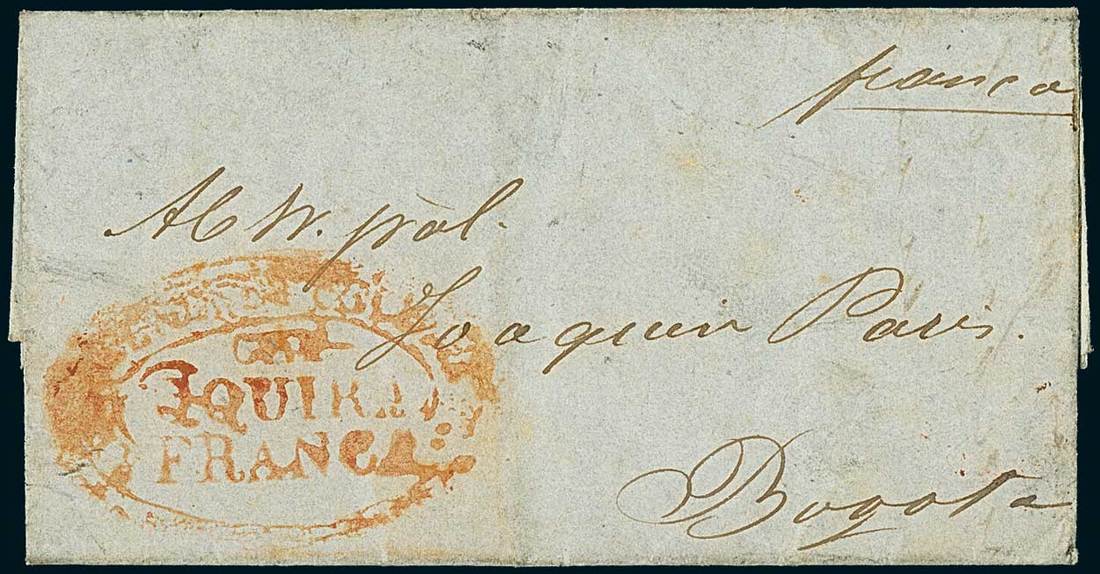 franca
Al Sr. gral.
Joaquin Paris.
Bogota
QUIRA
FRANCA